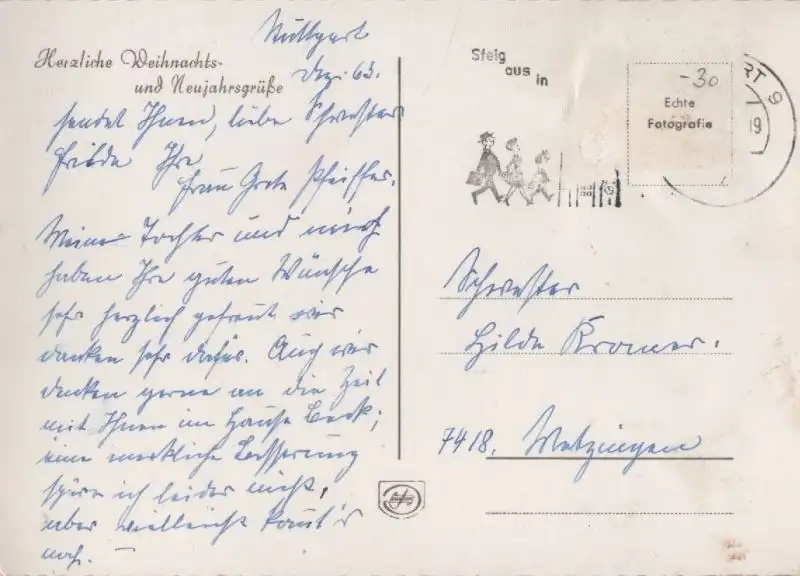 Stuttgart
Dez. 63.
Herzliche Weihnachts-
und Neujahrsgrüße
sendet Ihnen, liebe Schwester
Frieda Ihre
Frau Grete Pfeiffer.
Meine Tochter und mich
haben Ihre guten Wünsche
sehr herzlich gefreut wir
danken sehr dafür. Auch wir
denken gerne an die Zeit
mit Ihnen im Hause Beck;
eine merkliche Besserung
spüre ich leider nicht,
aber vielleicht kommt's
noch. —
Steig
aus
in
-30
Echte
Fotografie
RT 9
19
Schwester
Hilda Kromer.
7418. Metzingen